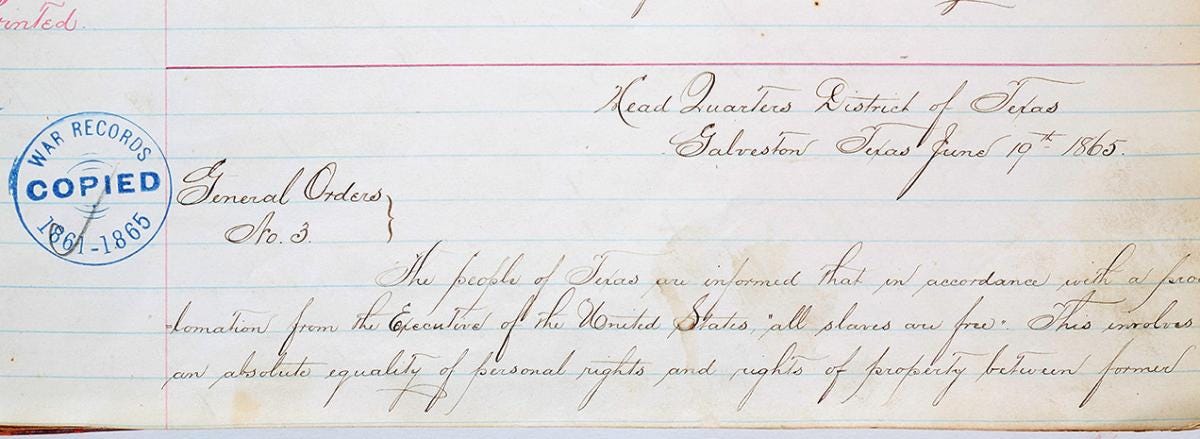 rinted.
Head Quarters District of Texas
Galveston Texas June 19th 1865.
WAR RECORDS
COPIED
1861-1865
General Orders
No. 3.
The people of Texas are informed that in accordance with a pro
-lomation from the Executive of the United States, "all slaves are free." This involves
an absolute equality of personal rights and rights of property between former